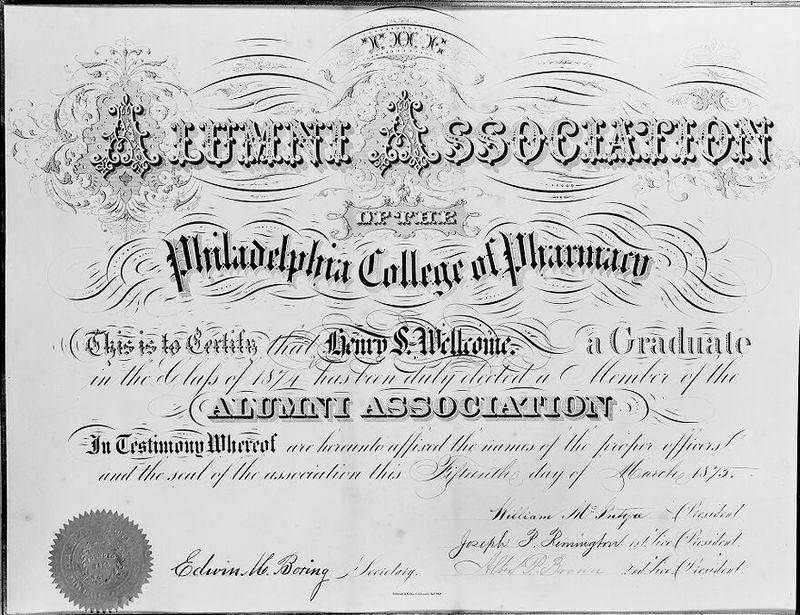 THE
ALUMNI ASSOCIATION
OF THE
Philadelphia College of Pharmacy
This is to Certify that Henry S. Wellcome. a Graduate
in the Class of 1874 has been duly elected a Member of the
ALUMNI ASSOCIATION
In Testimony Whereof are hereunto affixed the names of the proper officers
and the seal of the association this Fifteenth day of March 1875.
William President
Joseph P. Remington 1st Vice President
Edwin M. Boring Secretary. Albert P. Brown 2nd Vice President